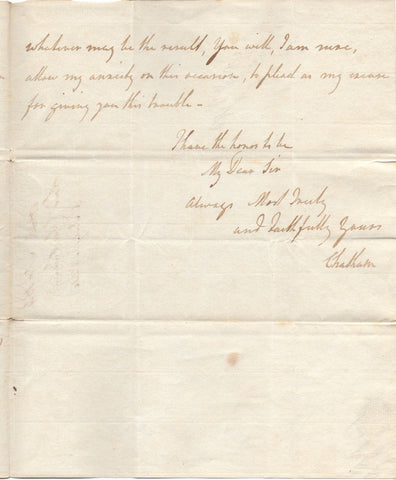 whatever may be the result, You will, I am sure,
allow my anxiety on this occasion, to plead as my excuse
for giving you this trouble –
I have the honor to be
My Dear Sir
Always Most Truly
and Faithfully Yours
Chatham